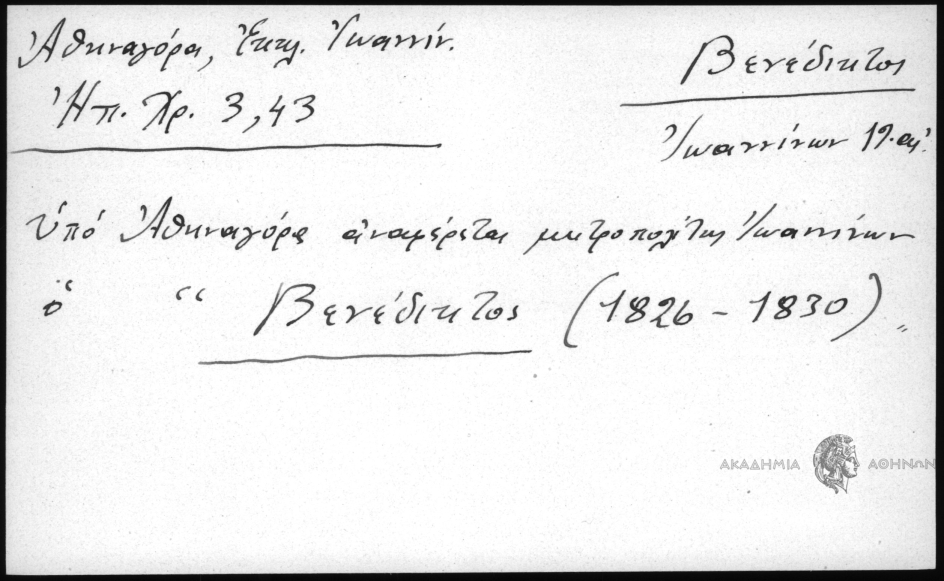 Ἀθηναγόρα, Ἐκκλ. Ἰωαννίν.
Ἠπ. Χρ. 3,43
Βενέδικτος
Ἰωαννίνων 19. αἰ.
Ὑπό Ἀθηναγόρα ἀναφέρεται μητροπολίτης Ἰωαννίνων
ὁ “ Βενέδικτος (1826 - 1830)„
ΑΚΑΔΗΜΙΑ ΑΘΗΝΩΝ